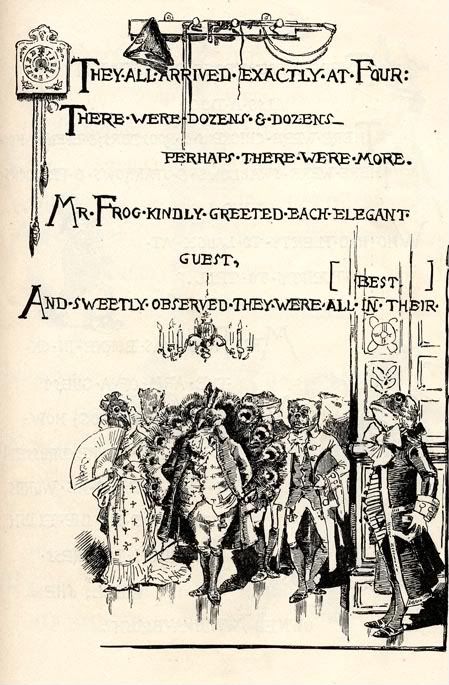 THEY·ALL·ARRIVED·EXACTLY·AT·FOUR:
THERE·WERE·DOZENS·&·DOZENS—
PERHAPS·THERE·WERE·MORE.
MR·FROG·KINDLY·GREETED·EACH·ELEGANT·
GUEST,
[BEST.]
AND·SWEETLY·OBSERVED·THEY·WERE·ALL·IN·THEIR·